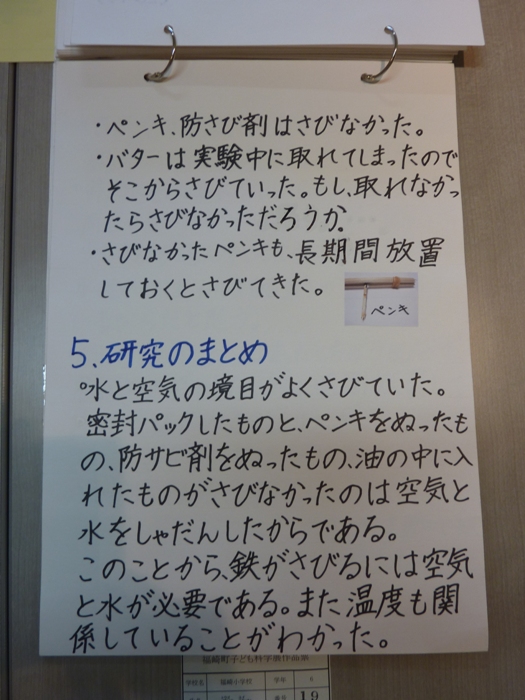 ・ペンキ、防さび剤はさびなかった。
・バターは実験中に取れてしまったので
そこからさびていった。もし、取れなかっ
たらさびなかっただろうか。
・さびなかったペンキも、長期間放置
しておくとさびてきた。
ペンキ
5、研究のまとめ
°水と空気の境目がよくさびていた。
密封パックしたものと、ペンキをぬったも
の、防サビ剤をぬったもの、油の中に入
れたものがさびなかったのは空気と
水をしゃだんしたからである。
このことから、鉄がさびるには空気
と水が必要である。また温度も関
係していることがわかった。
福崎町子ども科学展作品票
学校名 福崎小学校 学年
19